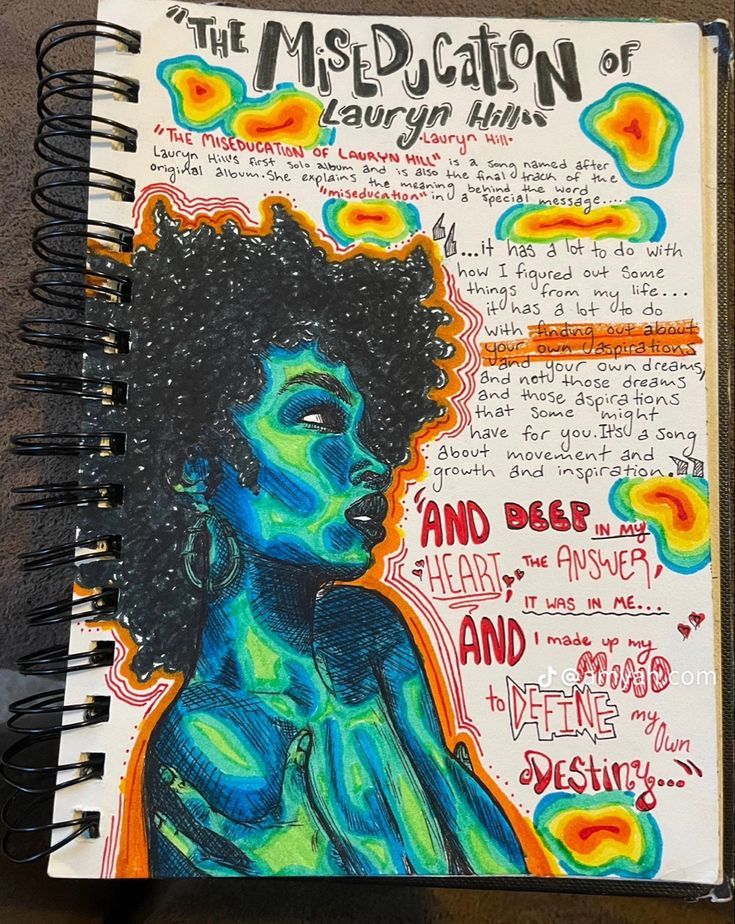 "THE MISEDUCATION OF
Lauryn Hill"
•Lauryn Hill•
"THE MISEDUCATION OF LAURYN HILL" is a song named after
Lauryn Hill's first solo album and is also the final track of the
original album. She explains the meaning behind the word
"miseducation" in a special message....
"...it has a lot to do with
how I figured out some
things from my life...
it has a lot to do
with finding out about
your own aspirations
and your own dreams,
and not those dreams
and those aspirations
that some might
have for you. It's a song
about movement and
growth and inspiration."
"AND DEEP IN MY
HEART, THE ANSWER,
IT WAS IN ME...
AND I made up my
MIND
to DEFINE my
own
DESTINY..."
@amyah.com